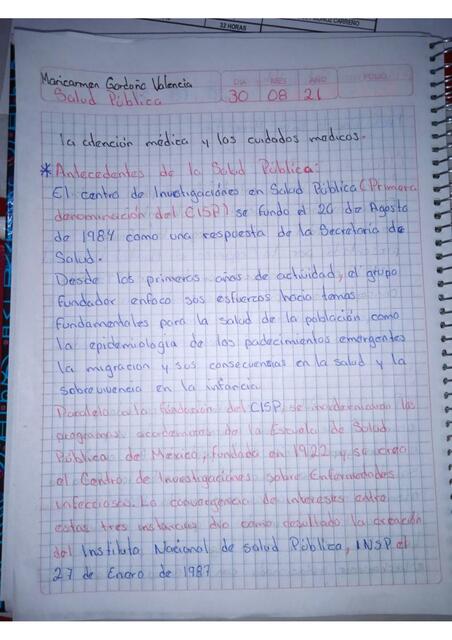 32 HORAS
CARREÑO
Maricarmen Gordoño Valencia
Salud Pública
DIA MES AÑO FOLIO
30 08 21
la atención médica y los cuidados medicos.
*Antecedentes de la Salud Pública:
El centro de Investigaciónes en Salud Pública (Primera
denominación del CISP) se fundo el 20 de Agosto
de 1984 como una respuesta de la Secretaria de
Salud.
Desde los primeros años de actividad, el grupo
fundador enfoco sus esfuerzos hacia temas
fundamentales para la salud de la población como
la epidemiologia de los padecimientos emergentes
la migracion y sus consecuencias en la salud y la
sobrevivencia en la infancia
Paralelo a la fundación del CISP, se modernizaron los
programas academicos de la Escuela de Salud
Pública de Mexico, fundada en 1922 y se creo
el Centro de Investigaciones sobre Enfermedades
infecciosas. La convergencia de intereses entre
estas tres instancias dio como resultado la creación
del Instituto Nacional de salud Pública, INSP el
27 de Enero de 1987